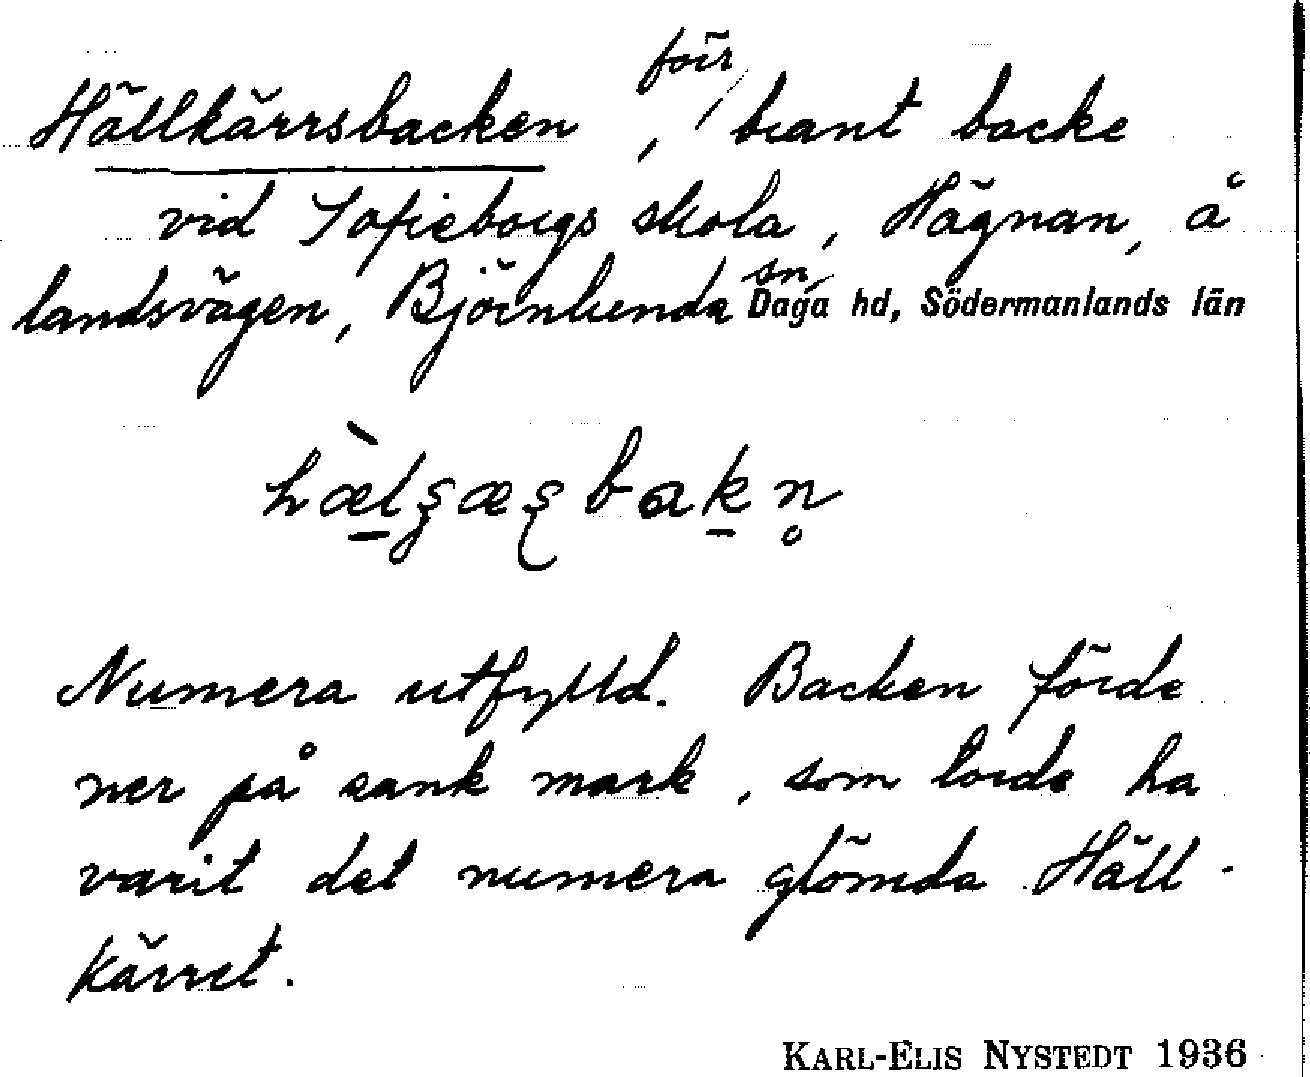 Hällkärrsbacken, förr brant backe
vid Sofieborgs skola, Hägnan, å
landsvägen, Björnlunda sn Daga hd, Södermanlands län
Numera utfylld. Backen förde
ner på sank mark, som torde ha
varit det numera glömda Häll-
kärret.
KARL-ELIS NYSTEDT 1936